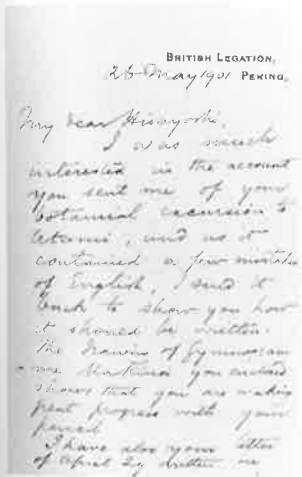 BRITISH LEGATION,
26 May 1901 PEKING.
My dear Hisayoshi,
I was much
interested in the account
you sent me of your
botanical excursion to
Atami, and as it
contained a few mistakes
of English, I send it
back to show you how
it should be written.
The drawing of Gymnogram
you enclosed
shows that you are making
great progress with your
pencil
I have also your letter
of April 29 written